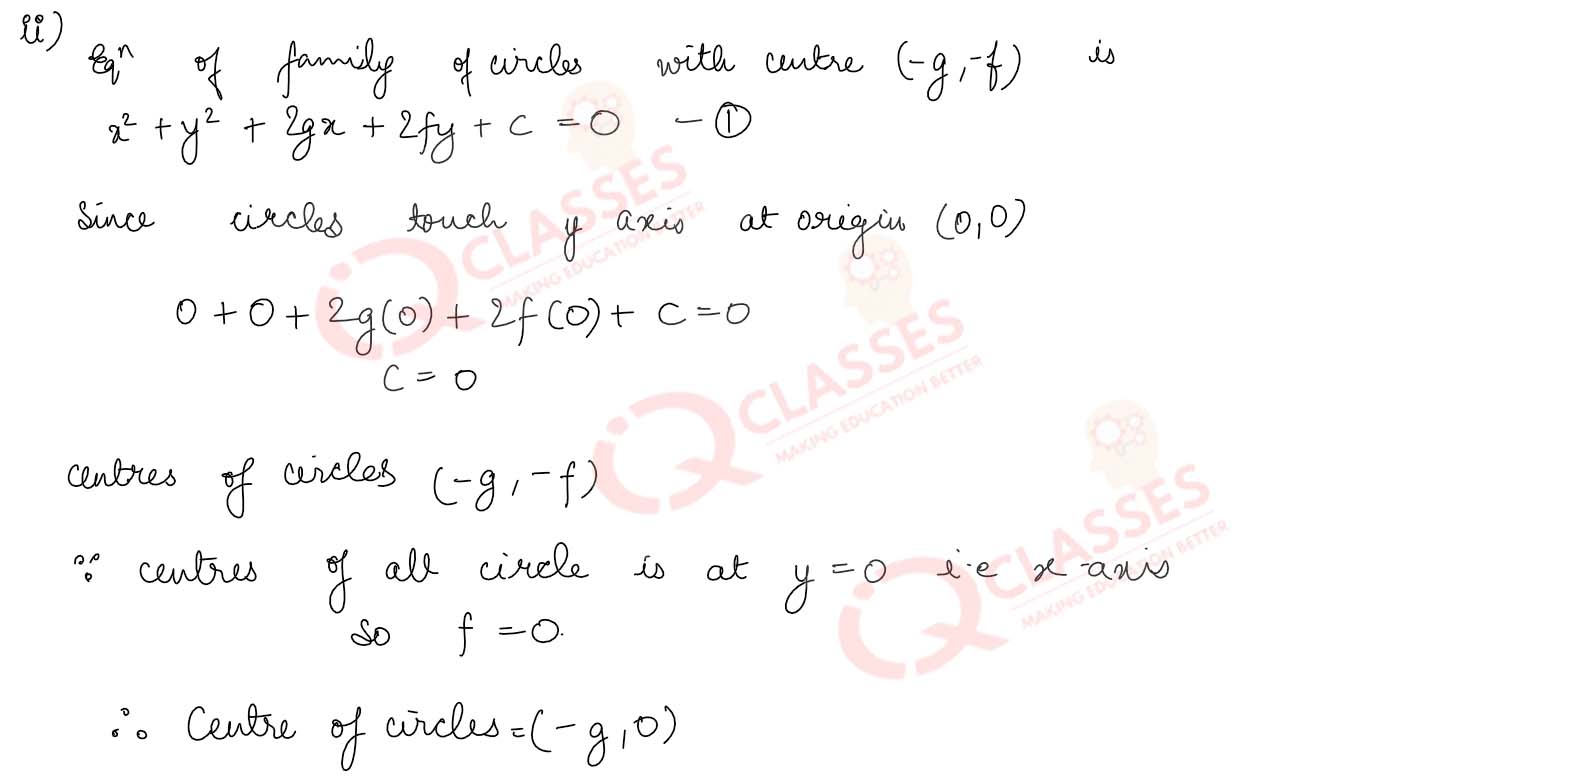 ii)
Eqⁿ of family of circles with centre (-g,-f) is
x² + y² + 2gx + 2fy + c = 0 - ①
Since circles touch y axis at origin (0,0)
0 + 0 + 2g(0) + 2f(0) + c = 0
c = 0
centres of circles (-g, -f)
∵ centres of all circle is at y = 0 i.e x-axis
So f = 0.
∴ Centre of circles = (-g, 0)
iQ CLASSES
MAKING EDUCATION BETTER
iQ CLASSES
MAKING EDUCATION BETTER
iQ CLASSES
MAKING EDUCATION BETTER